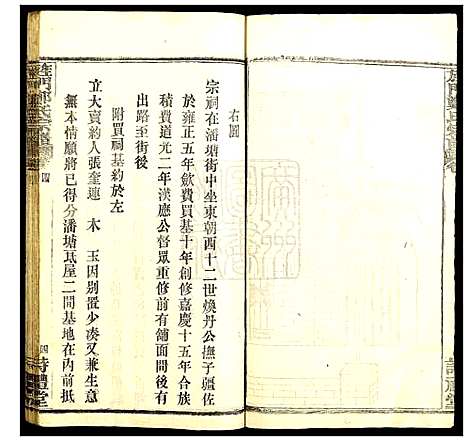 右圖
宗祠在潘塘街中坐東朝西十二世煥丹公撫子疆佐
於雍正五年歛費買基十年創修嘉慶十五年合族
積費道光二年漢應公督眾重修前有舖面間後有
出路至街後
附買祠基約於左
立大賣約人張奎連 木 玉因別置少凑又兼生意
無本情願將己得分潘塘瓦屋二間基地在內前抵
旌門鄭氏宗譜
四
四
詩禮堂